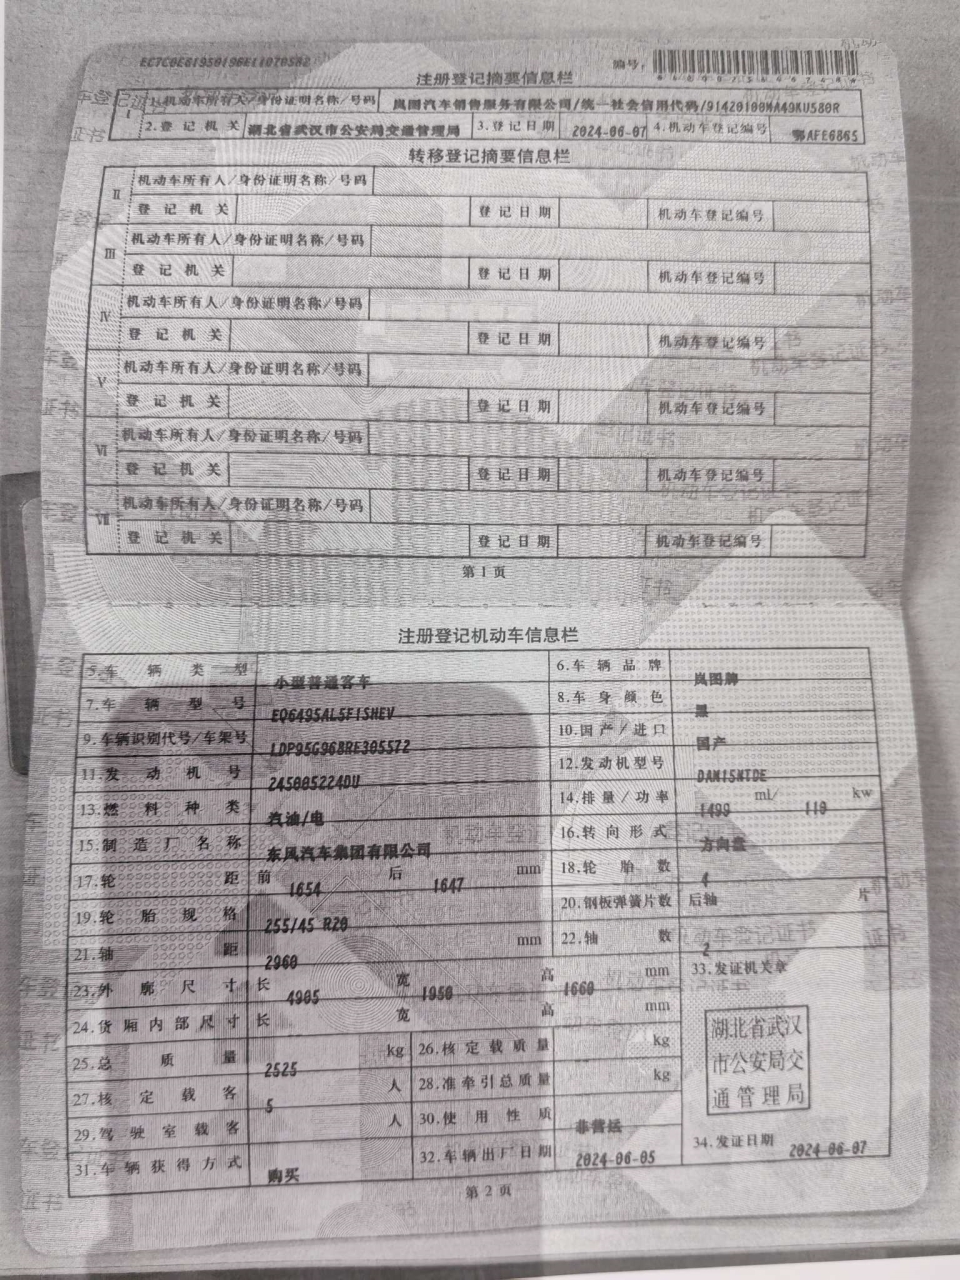 EC7C0E81950196E11070582
编号:
注册登记摘要信息栏
I 1.机动车所有人/身份证明名称/号码 岚图汽车销售服务有限公司/统一社会信用代码/91420100MA49KU580R
2.登记机关 湖北省武汉市公安局交通管理局 3.登记日期 2024-06-07 4.机动车登记编号 鄂AFE6865
转移登记摘要信息栏
II 机动车所有人/身份证明名称/号码
登记机关 登记日期 机动车登记编号
III 机动车所有人/身份证明名称/号码
登记机关 登记日期 机动车登记编号
IV 机动车所有人/身份证明名称/号码
登记机关 登记日期 机动车登记编号
V 机动车所有人/身份证明名称/号码
登记机关 登记日期 机动车登记编号
VI 机动车所有人/身份证明名称/号码
登记机关 登记日期 机动车登记编号
VII 机动车所有人/身份证明名称/号码
登记机关 登记日期 机动车登记编号
第1页
注册登记机动车信息栏
5.车辆类型 小型普通客车 6.车辆品牌 岚图牌
7.车辆型号 EQ6495AL5F1SHEV 8.车身颜色 黑
9.车辆识别代号/车架号 LDP95G968RE305572 10.国产/进口 国产
11.发动机号 245005224DU 12.发动机型号 DAM15NTDE
13.燃料种类 汽油/电 14.排量/功率 1499 ml/ 110 kw
15.制造厂名称 东风汽车集团有限公司 16.转向形式 方向盘
17.轮距 前 1654 后 1647 mm 18.轮胎数 4
19.轮胎规格 255/45 R20 20.钢板弹簧片数 后轴 片
21.轴距 2960 mm 22.轴数 2
23.外廓尺寸 长 4905 宽 1950 高 1660 mm 33.发证机关章
24.货厢内部尺寸 长 宽 高 mm
25.总质量 2525 kg 26.核定载质量 kg
27.核定载客 5 人 28.准牵引总质量 kg
29.驾驶室载客 人 30.使用性质 非营运
湖北省武汉
市公安局交
通管理局
31.车辆获得方式 购买 32.车辆出厂日期 2024-06-05 34.发证日期 2024-06-07
第2页